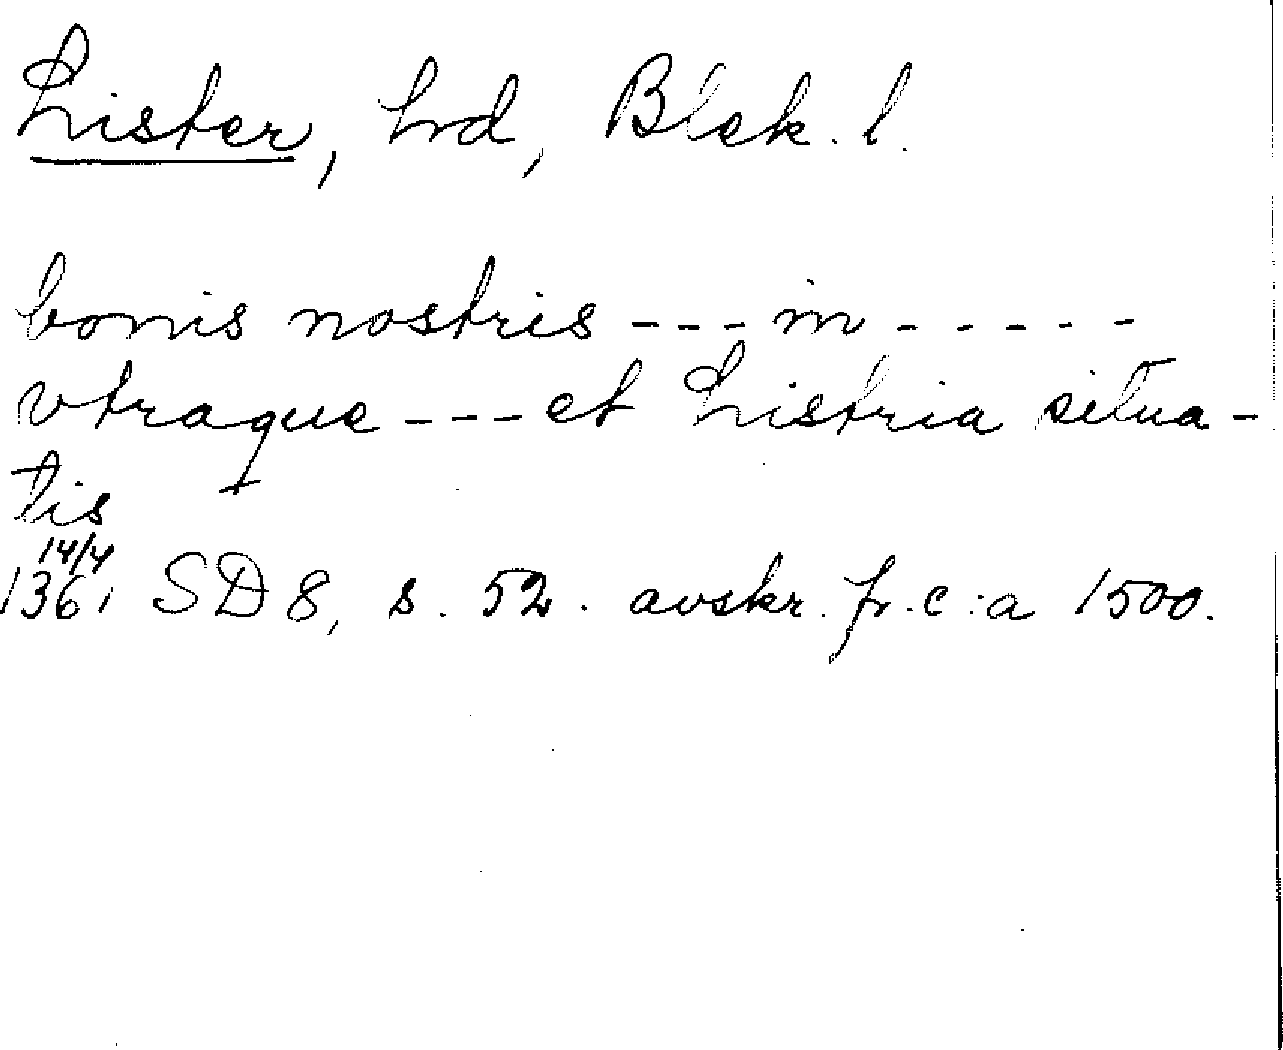 Lister, hrd, Blek. l.
bonis nostris --- in - - - - - -
vtraque --- et Listria situa-
tis
14/4
1361 SD 8, s. 52. avskr. fr. c:a 1500.